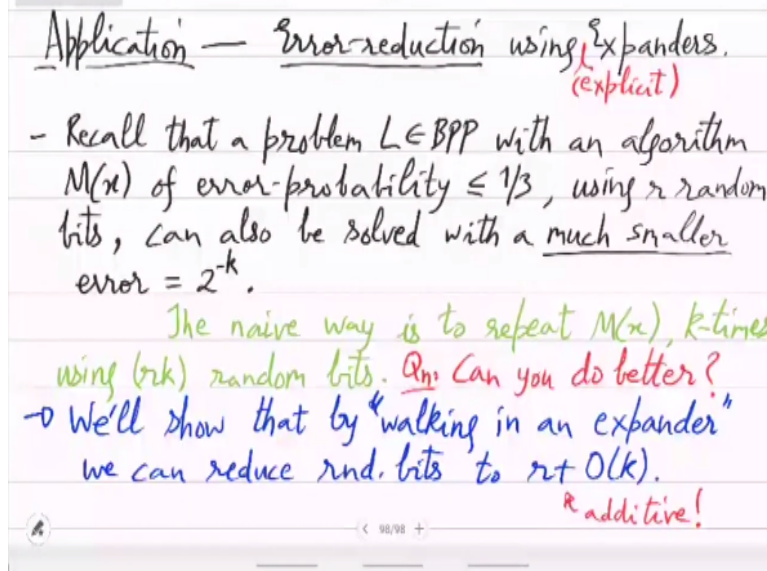 Application — Error-reduction using Expanders.
(explicit)
- Recall that a problem L∈BPP with an algorithm
M(x) of error-probability ≤ 1/3, using r random
bits, can also be solved with a much smaller
error = 2^-k.
The naive way is to repeat M(x), k-times
using (rk) random bits. Qn: Can you do better?
→ We'll show that by "walking in an expander"
we can reduce rnd. bits to r+ O(k).
additive!
< 98/98 +